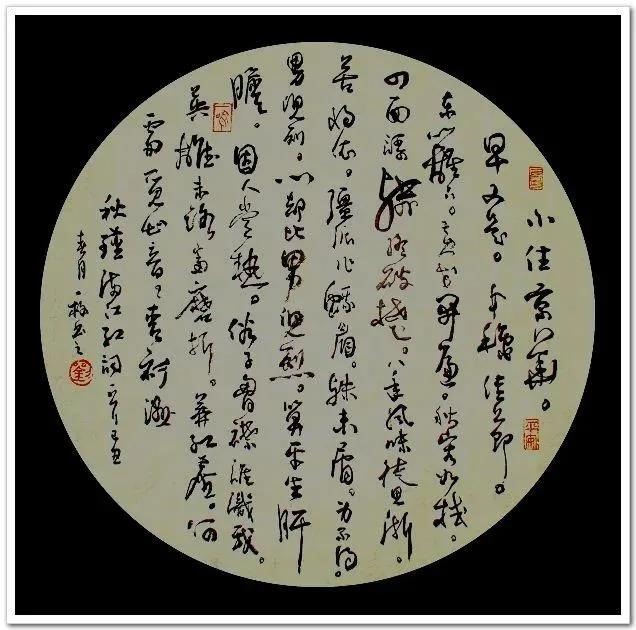 小住京華。
早又是。中穐佳節。
籬下。黃花開遍。秋容如拭。
四面歌殘終破楚。八年風味徒思浙。
苦將儂。彊派作蛾眉。殊未屑。身不得。
男兒列。心却比男兒烈。算平生肝
膽。因人常熱。俗子胸襟誰識我。
英雄末路當磨折。莽紅塵。何
處覓知音。青衫濕
秋瑾滿江紅詞
春月 書之